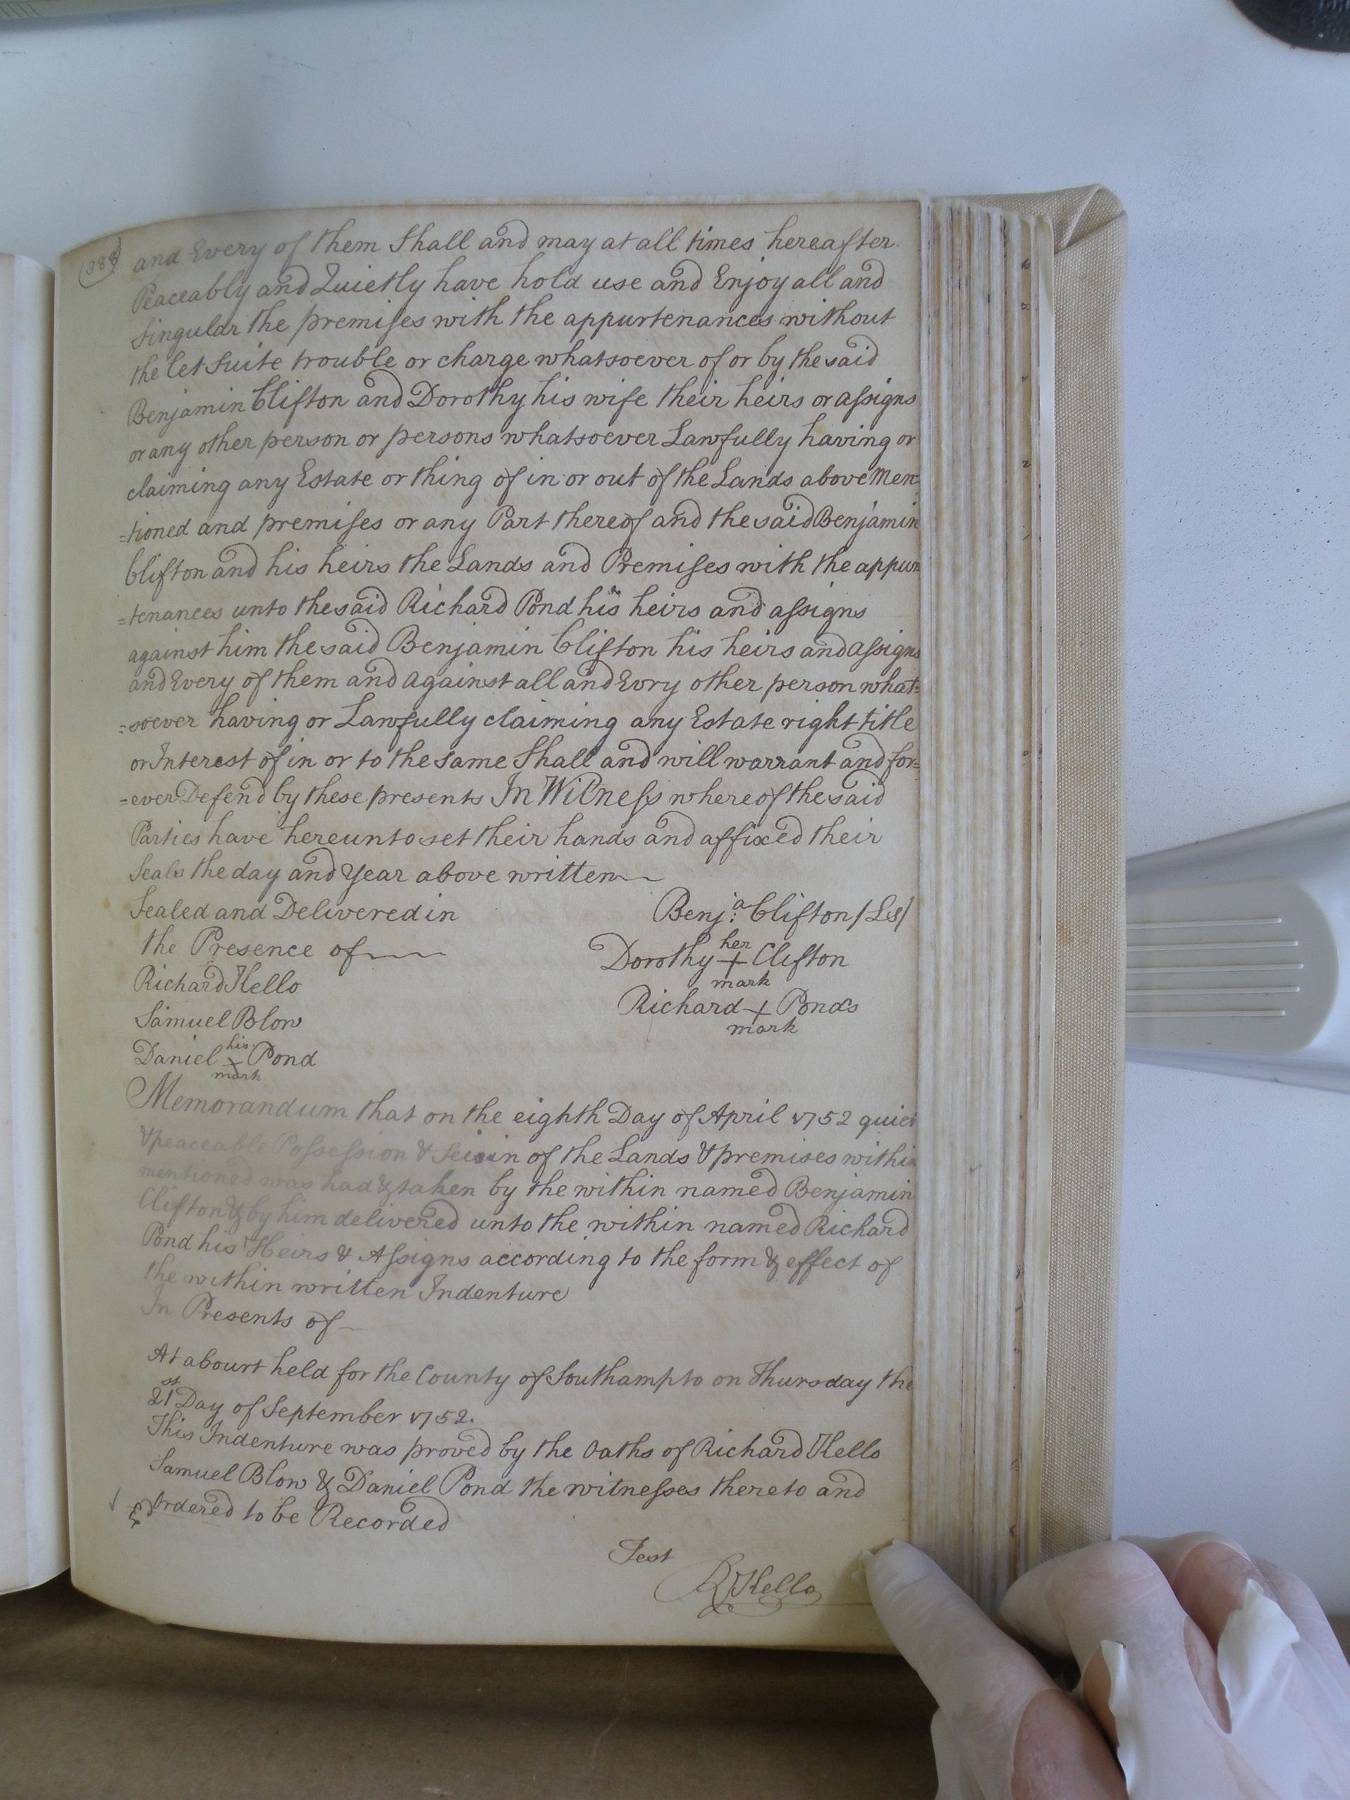 (388)
and Every of them Shall and may at all times hereafter
Peaceably and Quietly have hold use and Enjoy all and
singular the premises with the appurtenances without
the let suite trouble or charge whatsoever of or by the said
Benjamin Clifton and Dorothy his wife their heirs or assigns
or any other person or persons whatsoever Lawfully having or
claiming any Estate or thing of in or out of the Lands above Men
=tioned and premises or any Part thereof and the said Benjamin
Clifton and his heirs the Lands and Premises with the appur
=tenances unto the said Richard Pond his heirs and assigns
against him the said Benjamin Clifton his heirs and assigns
and Every of them and against all and Evry other person what=
=soever having or Lawfully claiming any Estate right title
or Interest of in or to the same Shall and will warrant and for=
=ever Defend by these presents In Witness whereof the said
Parties have hereunto set their hands and affixed their
Seals the day and Year above written
Sealed and Delivered in
the Presence of
Richard Kello
Samuel Blow
Daniel his + mark Pond
Benja. Clifton (Ls)
Dorothy her + mark Clifton
Richard + mark Ponds
Memorandum that on the eighth Day of April 1752 quiet
& peaceable Possession & Seisin of the Lands & premises within
mentioned was had & taken by the within named Benjamin
Clifton & by him delivered unto the within named Richard
Pond his Heirs & Assigns according to the form & effect of
the within written Indenture
In Presents of
At a bourt held for the County of Southampto on Thursday the
21st Day of September 1752.
This Indenture was proved by the Oaths of Richard Kello
Samuel Blow & Daniel Pond the witnesses thereto and
Ordered to be Recorded
Test
R Kello